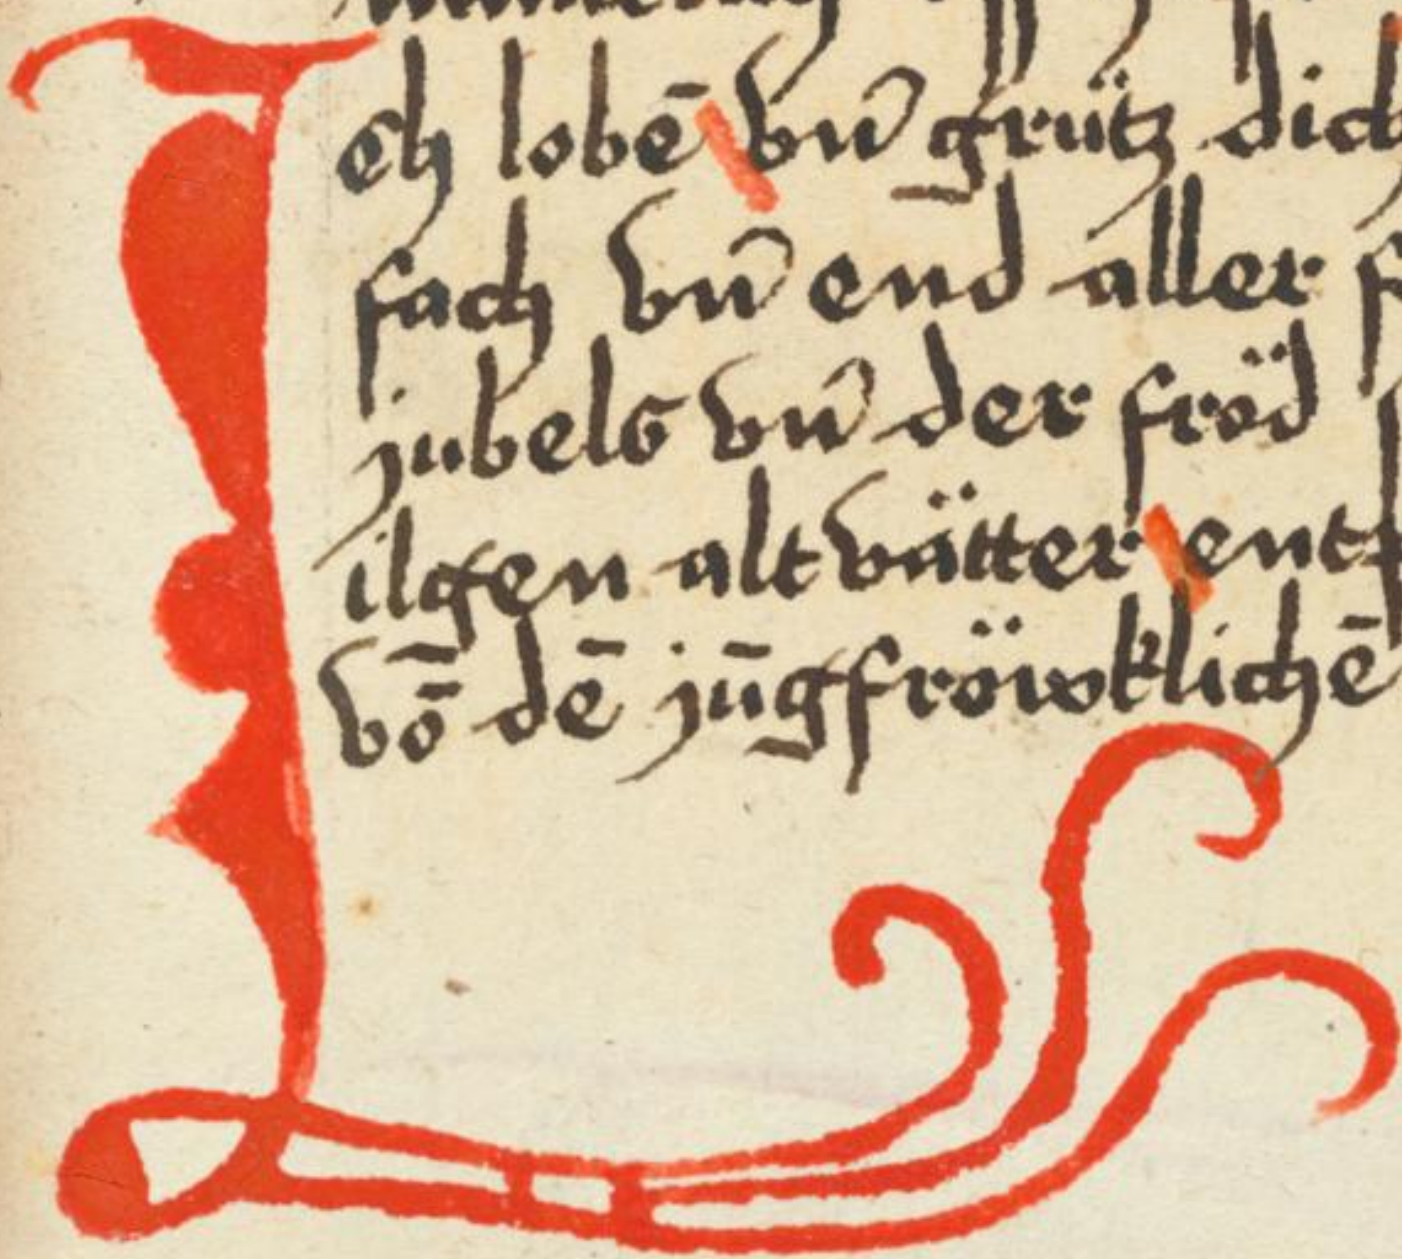 Ich lobē vn̄ grütz dich
sach vn̄ end aller
jubels vn̄ der fröd
ilgen alt vätter ent
vō dē jūgfröwklichē